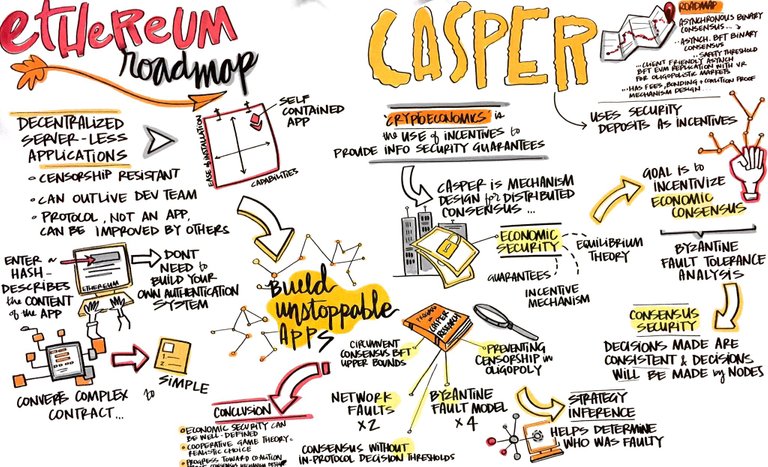 ETHEREUM
roadmap
DECENTRALIZED
SERVER-LESS
APPLICATIONS
• CENSORSHIP RESISTANT
• CAN OUTLIVE DEV TEAM
• PROTOCOL, NOT AN APP,
CAN BE IMPROVED BY OTHERS
EASE of INSTALLATION
CAPABILITIES
SELF
CONTAINED
APP
ENTER a
HASH-
DESCRIBES
the CONTENT
of the APP
ETHEREUM
DONT
NEED to
BUILD YOUR
OWN AUTHENTICATION
SYSTEM
CONVERTS COMPLEX to SIMPLE
CONTRACT...
Build
unstoppable
APPS
CASPER
ROADMAP
ASYNCHRONOUS BINARY
CONSENSUS...
..ASYNCH. BFT BINARY
CONSENSUS
..SAFETY THRESHOLD
...CLIENT FRIENDLY ASYNCH
BFT EVM REPLICATION WITH VR
FOR OLIGOPOLISTIC MARKETS
...HAS FEES, BONDING & COALITION PROOF
MECHANISM DESIGN...
CRYPTOECONOMICS is
the USE of INCENTIVES to
PROVIDE INFO SECURITY GUARANTEES
USES SECURITY
DEPOSITS AS INCENTIVES
CASPER is MECHANISM
DESIGN for DISTRIBUTED
CONSENSUS...
ECONOMIC
SECURITY
EQUILIBRIUM
THEORY
GUARANTEES
INCENTIVE
MECHANISM
GOAL IS to
INCENTIVIZE
ECONOMIC
CONSENSUS
BYZANTINE
FAULT TOLERANCE
ANALYSIS
CONSENSUS
SECURITY
DECISIONS MADE ARE
CONSISTENT & DECISIONS
WILL BE MADE by NODES
CASPER
RESEARCH
CIRCUMVENT
CONSENSUS BFT
UPPER BOUNDS
PREVENTING
CENSORSHIP in
OLIGOPOLY
NETWORK
FAULTS
x2
BYZANTINE
FAULT MODEL
x4
CONSENSUS WITHOUT
IN-PROTOCOL DECISION THRESHOLDS
STRATEGY
INFERENCE
HELPS DETERMINE
WHO WAS FAULTY
CONCLUSION
• ECONOMIC SECURITY CAN
BE WELL-DEFINED
• COOPERATIVE GAME THEORY -
REALISTIC CHOICE
• PROGRESS TOWARD COALITION
CONSENSUS MECHANISM DESIGN